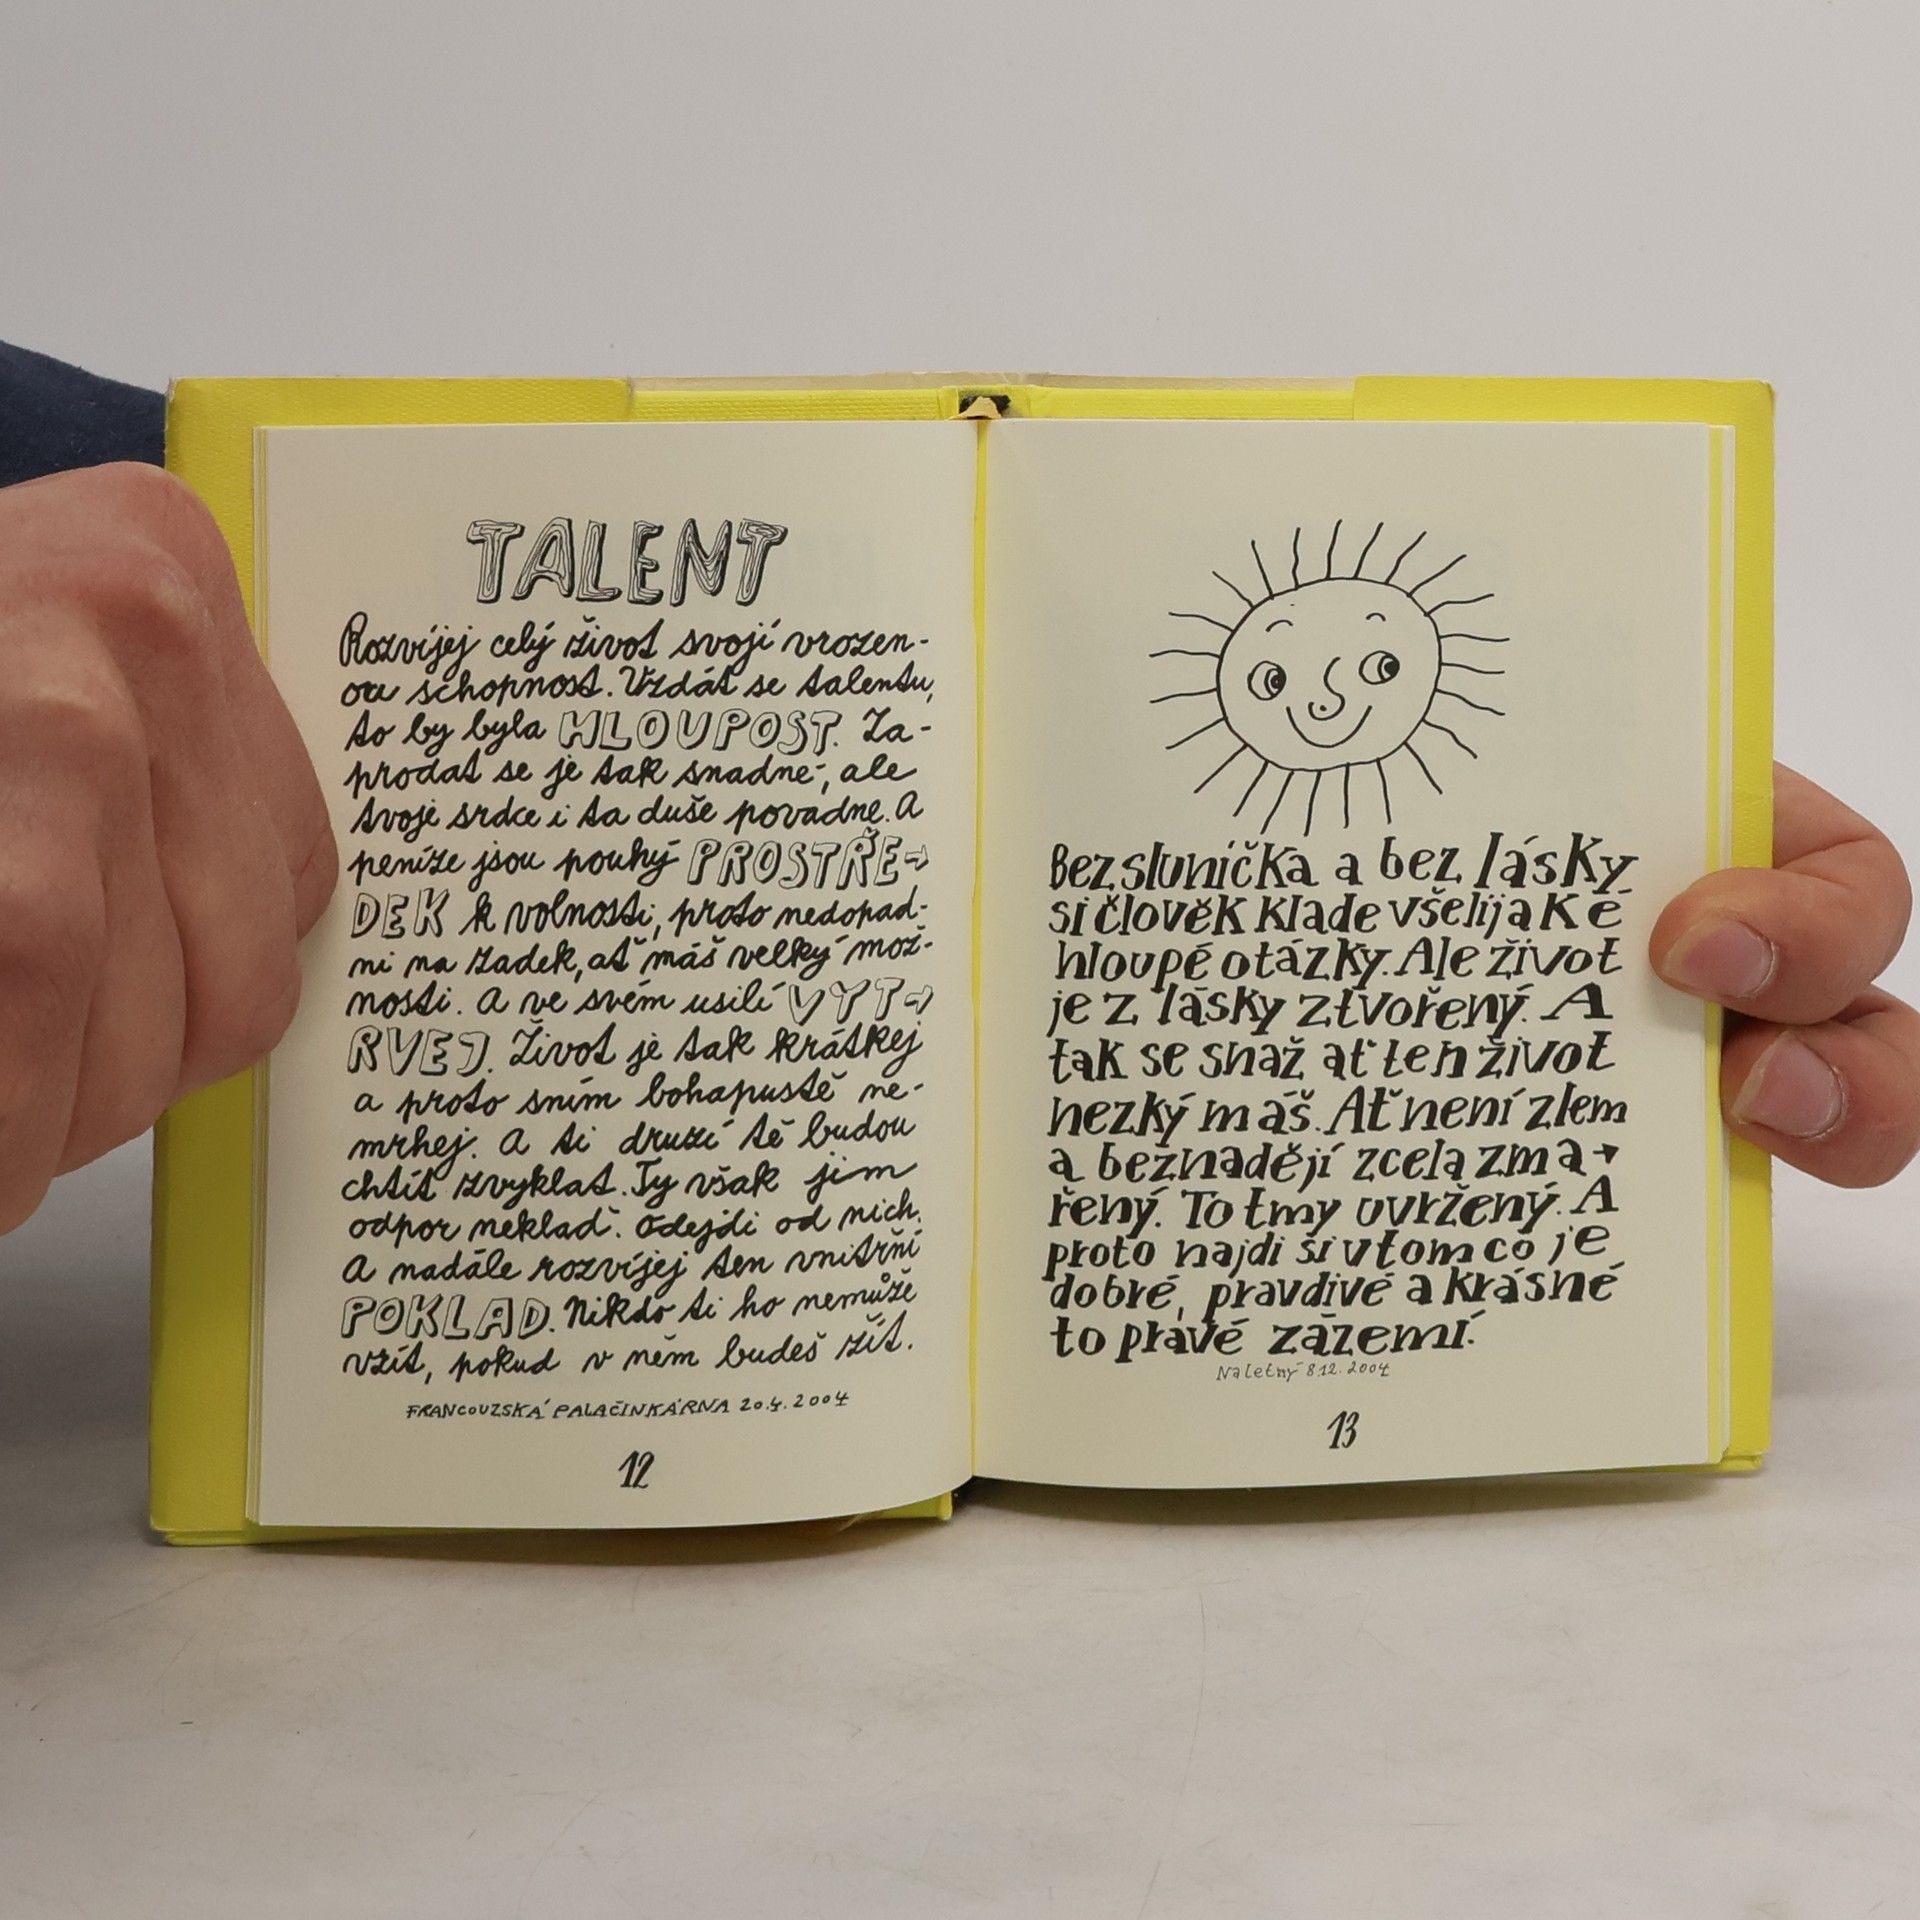 TALENT
Rozvíjej celý život svojí vrozen-
ou schopnost. Vzdát se talentu,
to by byla HLOUPOST. Za-
prodat se je tak snadné, ale
tvoje srdce i ta duše povadne. A
peníze jsou pouhý PROSTŘE→
DEK k volnosti, proto nedopad-
ni na zadek, ať máš velký mož-
nosti. A ve svém usilí VYT→
RVEJ. Život je tak krátkej
a proto sním bohapustě ne-
mrhej. A ti druzí tě budou
chtít zvyklat. Ty však jim
odpor neklaď. Odejdi od nich.
A nadále rozvíjej ten vnitřní
POKLAD. Nikdo ti ho nemůže
vzít, pokud v něm budeš žít.
FRANCOUZSKÁ PALAČINKÁRNA 20.4.2004
12
Bez sluníčka a bez lásky
si člověk klade všelijaké
hloupé otázky. Ale život
je z lásky ztvořený. A
tak se snaž ať ten život
nezký máš. Ať není zlem
a beznadějí zcela zma→
řený. To tmy uvržený. A
proto najdi si v tom co je
dobré, pravdivé a krásné
to pravé zázemí.
Na letný 8.12.2004
13